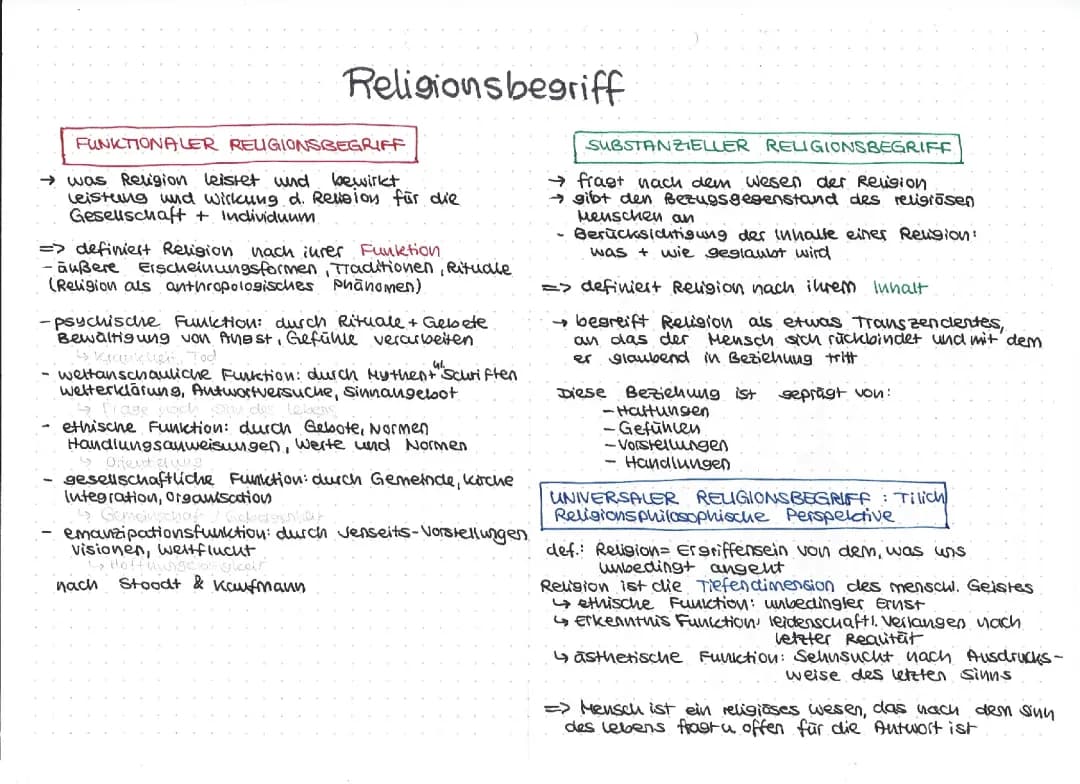 Religionsbegriff
FUNKTIONALER RELIGIONSBEGRIFF
→ was Religion leistet und bewirkt
Leistung und wirkung d. Religion für die
Gesellschaft + Individuum
=> definiert Religion nach ihrer Funktion
- äußere Erscheinungsformen, Traditionen, Rituale
(Religion als anthropologisches Phänomen)
- psychische Funktion: durch Rituale + Gebete
Bewältigung von Angst, Gefühle verarbeiten
↳ Krankheit, Tod
- weltanschauliche Funktion: durch Mythen + Hl. Schriften
welterklärung, Antwortversuche, Sinnangebot
↳ Frage nach Sinn des Lebens
- ethische Funktion: durch Gebote, Normen
Handlungsanweisungen, Werte und Normen
↳ Orientierung
- gesellschaftliche Funktion: durch Gemeinde, Kirche
Integration, Organisation
↳ Gemeinschaft /
- emanzipationsfunktion: durch Jenseits-Vorstellungen
visionen, weltflucht
nach Stoodt & Kaufmann
SUBSTANZIELLER RELIGIONSBEGRIFF
→ fragt nach dem Wesen der Religion
→ gibt den Bezugsgegenstand des religiösen
Menschen an
- Berücksichtigung der Inhalte einer Religion:
was + wie geglaubt wird
=> definiert Religion nach ihrem Inhalt
→ begreift Religion als etwas Transzendentes,
an das der Mensch sich rückbindet und mit dem
er glaubend in Beziehung tritt
Diese Beziehung ist geprägt von:
- Haltungen
- Gefühlen
- Vorstellungen
- Handlungen
UNIVERSALER RELIGIONSBEGRIFF : Tilich
Religionsphilosophische Perspektive
def.: Religion= Ergriffensein von dem, was uns
unbedingt angeht
Religion ist die Tiefendimension des menschl. Geistes
↳ ethische Funktion: unbedingter Ernst
↳ Erkenntnis Funktion: leidenschaftl. Verlangen nach
letzter Realität
↳ ästhetische Funktion: Sehnsucht nach Ausdrucks-
weise des letzten Sinns
=> Mensch ist ein religiöses Wesen, das nach dem Sinn
des Lebens fragt u. offen für die Antwort ist